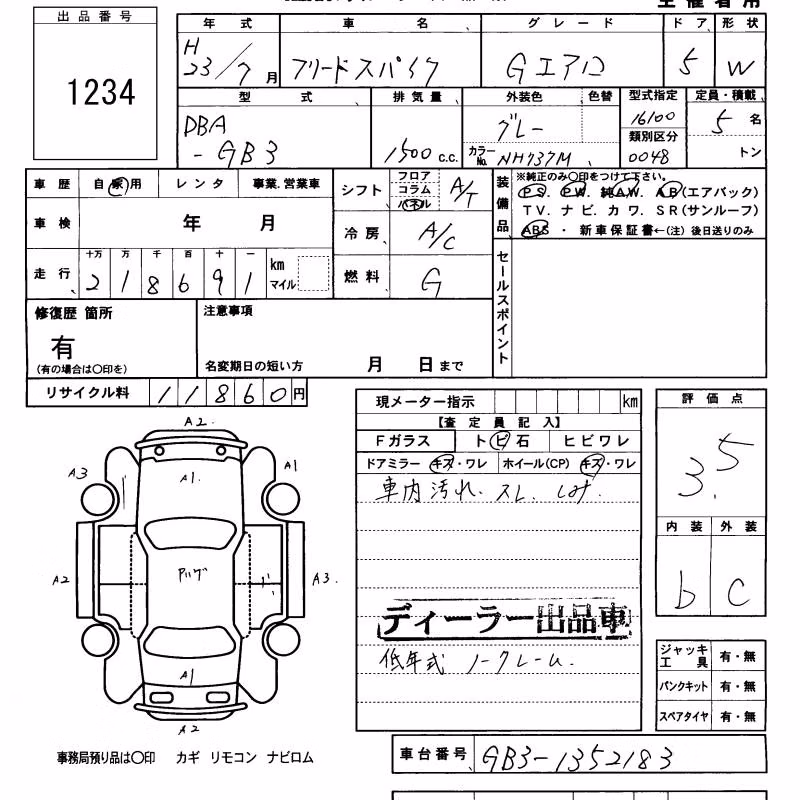 出品番号
1234
年式 車名 グレード ドア 形状
H23/7月 フリードスパイク Gエアロ 5 W
型式 排気量 外装色 色替 型式指定 定員・積載
DBA-GB3 1500c.c. グレー 16100 5名
カラーNo. NH737M 類別区分 0048 トン
車歴 自家用 レンタ 事業.営業車
シフト フロア コラム パネル A/T
装備品
※純正のみ〇印をつけて下さい。
PS. PW. 純AW. AB(エアバック)
TV. ナビ. カワ. SR(サンルーフ)
ABS ・ 新車保証書←(注) 後日送りのみ
車検 年 月
冷房 A/C
走行 十万 万 千 百 十 一
218691 km マイル
燃料 G
セールスポイント
修復歴 箇所
有
(有の場合は〇印を)
注意事項
名変期日の短い方 月 日まで
リサイクル料 11860円
現メーター指示 km
【査定員記入】
Fガラス トビ石 ヒビワレ
ドアミラー キズ・ワレ ホイール(CP) キズ・ワレ
車内汚れ.スレ.しみ.
ディーラー出品車
低年式 ノークレーム.
評価点
3.5
内装 外装
b C
A2.
A3 A1. A1
A2 A3.
A1
A2
ジャッキ工具 有・無
パンクキット 有・無
スペアタイヤ 有・無
事務局預り品は〇印 カギ リモコン ナビロム
車台番号 GB3-1352183